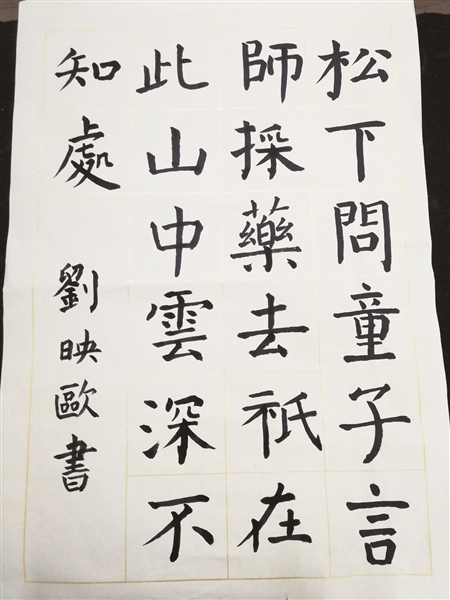 松下問童子言
師採藥去祇在
此山中雲深不
知處
劉映歐書